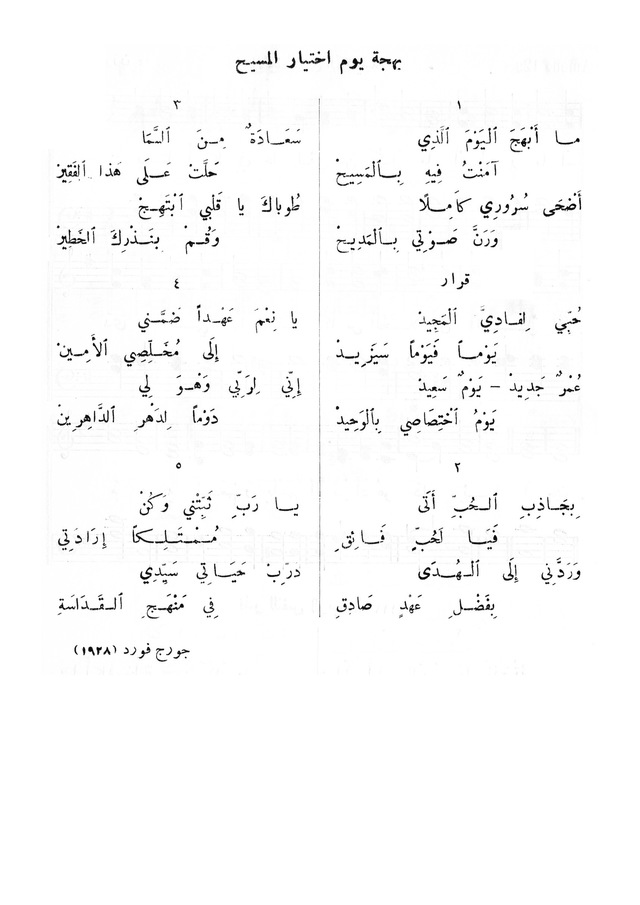 بهجة يوم اختيار المسيح
١
مـا أَبْهَجَ ٱلْيَوْمَ ٱلَّذِي
آمَنْتُ فِيهِ بِـٱلْمَسِيحْ
أَضْحَى سُرُورِي كَامِـلًا
وَرَنَّ صَوْتِي بِـٱلْمَدِيحْ
قرار
حُبِّي لِفَـادِيَّ ٱلْمَجِيدْ
يَوْمـاً فَيَوْماً سَيَزِيـدْ
عُمْرٌ جَدِيدْ – يَوْمٌ سَعِيدْ
يَوْمُ ٱخْتِصَاصِي بِٱلْوَحِيدْ
٢
بِجَـاذِبِ ٱلْحُبِّ أَتَى
فَيَـا لَحُبٍّ فَـائِقِ
وَرَدَّنِي إِلَى ٱلْـهُدَى
بِفَضْـلِ عَهْدٍ صَادِقِ
٣
سَعَـادَةٌ مِـنَ ٱلسَّمَا
حَلَّتْ عَـلَى هَذا ٱلْفَقِيرْ
طُوباكَ يا قَلْبي ٱبْتَهِـجْ
وَقُـمْ بِنَـذْرِكَ ٱلخَطِيرْ
٤
يا نِعْمَ عَهْـداً ضَمَّـني
إِلَى مُخَـلِّصِي ٱلْأَمِـينْ
إِنِّي لِرَبِّي وَهْـوَ لِي
دَوْماً لِدَهْرِ ٱلدَّاهِرِينْ
٥
يـا رَبِّ ثَبِّتْنِي وَكُنْ
مُمْـتَـلِـكـاً إِرَادَتِي
دَرِّبْ حَيَـاتِي سَيِّدِي
فِي مَنْهَـجِ ٱلْـقَـدَاسَةِ
جورج فورد (١٩٢٨)